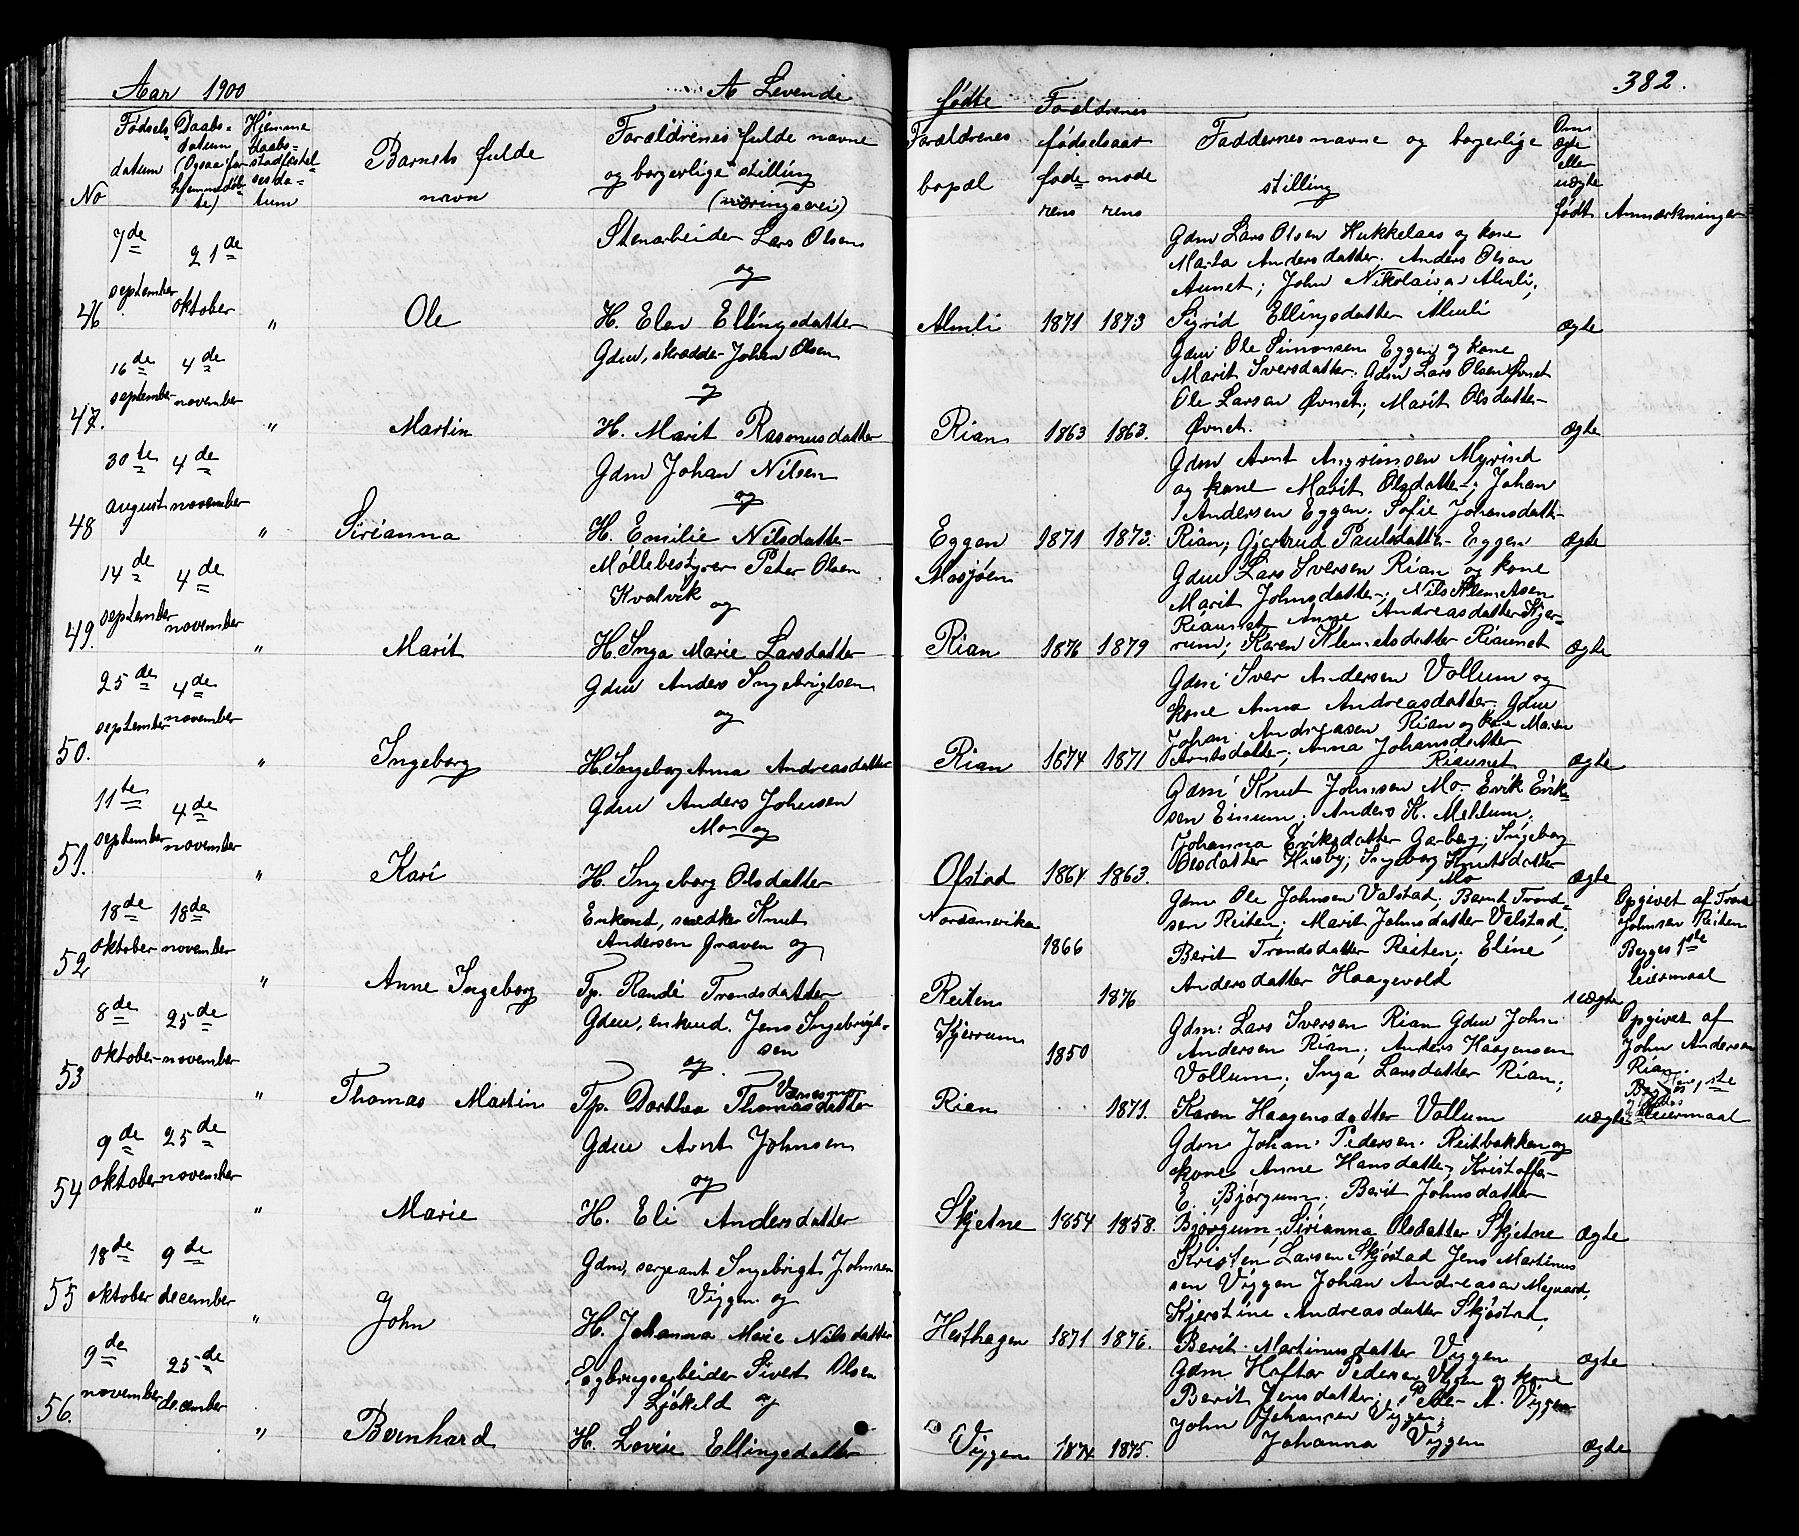 Aar 1900
A Levende
fødte
382.
No
Fødsels
datum
Daabs-
datum
(Ogsaa for
hjemmedøb-
te)
Hjemme
daabs-
stadfæstel
sesda-
tum
Barnets fulde
navn
Forældrenes fulde navne
og borgerlige stilling
(næringsvei)
Forældrenes
bopæl
Forældrenes
fødselsaar
fade- mode
rens rens
Faddernes navne og borgerlige
stilling
Om
ægte
eller
uægte
født
Anmærkninger
46
7de
september
21de
oktober
"
Ole
Stenarbeider Lars Olsen
og
H. Elen Ellingsdatter
Almli
1871 1873
Gdm Lars Olsen Hukkelaas og kone
Marta Andersdatter. Anders Olsen
Aunet; John Nikolaisen Almli;
Sigrid Ellingsdatter Almli
ægte
47.
16de
september
4de
november
"
Martin
Gdm, skrædder Johan Olsen
og
H. Marit Rasmusdatter
Rian
1863 1863.
Gdm Ole Simonsen Eggen og kone
Marit Iversdatter. Gdm Lars Olsen Øvnet
Ole Larsen Øvnet; Marit Olsdatter
Øvnet.
ægte
48
30te
august
4de
november
"
Sirianna
Gdm Johan Nilsen
og
H. Emilie Nilsdatter
Eggen
1871 1873.
Gdm Arnt Myrind
og kone Marit Olsdatter; Johan
Andersen Eggen. Sofie Johansdatter
Rian; Gjertrud Paulsdatter Eggen
ægte
49.
14de
september
4de
november
"
Marit
Møllebestyrer Peter Olsen
Kvalvik og
H. Inga Marie Larsdatter
Mosjøen
Rian
1876 1879
Gdm Lars Iversen Rian og kone
Marit Johnsdatter; Nils Klemetsen
Riaunet Anne Andreasdatter Kjer-
rum; Karen Klemetsdatter Riaunet
ægte
50.
25de
september
4de
november
"
Ingeborg
Gdm Anders Ingebrigtsen
og
H. Ingeborg Anna Andreasdatter
Rian
1874 1871
Gdm Iver Andersen Vollum og
kone Anna Andreasdatter Gdm
Johan Andreasen Rian og kone Maren
Arntsdatter; Anna Johansdatter
Riaunet
ægte
51.
11te
september
4de
november
"
Kari
Gdm Anders Johnsen
Mo og
H. Ingeborg Olsdatter
Ofstad
1864 1863.
Gdm Knut Johnsen Mo. Erik Erik-
sen Einum; Anders K. Mellum;
Johanna Eriksdatter Garberg; Ingeborg
Olsdatter Husby; Ingeborg Knutsdatter
Mo
ægte
52
18de
oktober
18de
november
"
Anne Ingeborg
Enkemd, snedker Knut
Andersen Graven og
Tp. Randi Trondsdatter
Nordamerika
Reiten
1866
1876
Gdm Ole Johnsen Valstad, Bernt Trond-
sen Reiten; Marit Johnsdatter Velstad;
Berit Trondsdatter Reiten; Eline
Andersdatter Haagevold
uægte
Opgivet af Trond
Johnsen Reiten
Begges 1ste
leiermaal
53
8de
oktober
25de
november
"
Thomas Martin
Gdm, enkemd. Jens Ingebrigt-
sen
og
Værnesmo
Tp. Dorthea Thomasdatter
Kjerrum
Rian
1850
1871.
Gdm: Lars Iversen Rian Gdm John
Andersen Rian; Anders Haagensen
Vollum; Inga Larsdatter Rian;
Karen Haagensdatter Vollum
uægte
Opgivet af
John Andersen
Rian.
1ste
leiermaal
54
9de
oktober
25de
november
"
Marie
Gdm Arnt Johnsen
og
H. Eli Andersdatter
Skjetne
1854 1858.
Gdm Johan Pedersen Reitbakken og
kone Anne Hansdatter; Kristoffer
E. Bjørgum; Berit Johnsdatter
Bjørgum; Sirianna Olsdatter Skjetne
ægte
55
18de
oktober
9de
december
"
John
Gdm, sergeant Ingebrigt Johnsen
Viggen og
H. Johanna Marie Nilsdatter
Hesthagen
1871 1876.
Kristen Larsen Skjøstad Jens Martinus
sen Viggen Johan Andreasen
Kjerstine Andreasdatter Skjøstad;
Berit Martinusdatter Viggen
ægte
56.
9de
november
25de
december
"
Bernhard
Sagbrugsarbeider Sivert Olsen
og
H. Lovise Ellingsdatter
Viggen
1874 1875.
Gdm Haftor Pedersen Viggen og kone
Berit Jensdatter; Peder A. Viggen
John Johansen Viggen;
Johanna Viggen
ægte